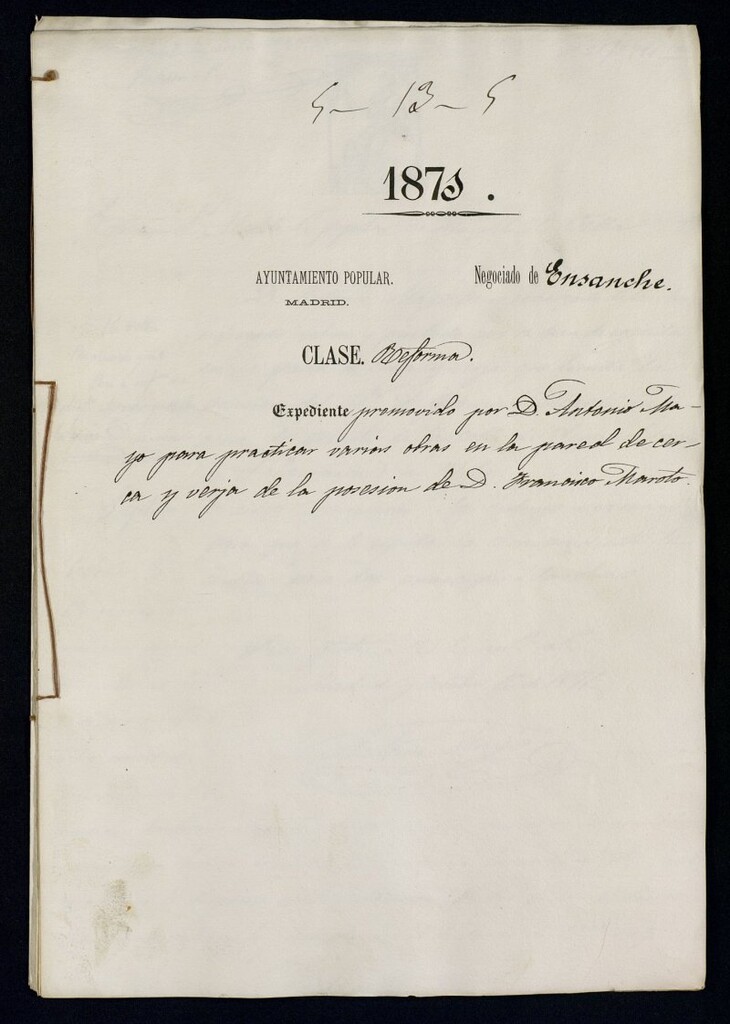 5- 13- 5
1873.
AYUNTAMIENTO POPULAR.
MADRID.
Negociado de Ensanche.
CLASE. Reforma.
Expediente promovido por D. Antonio Ma-
yo para practicar varias obras en la pared de cer-
ca y verja de la posesion de D. Francisco Maroto.